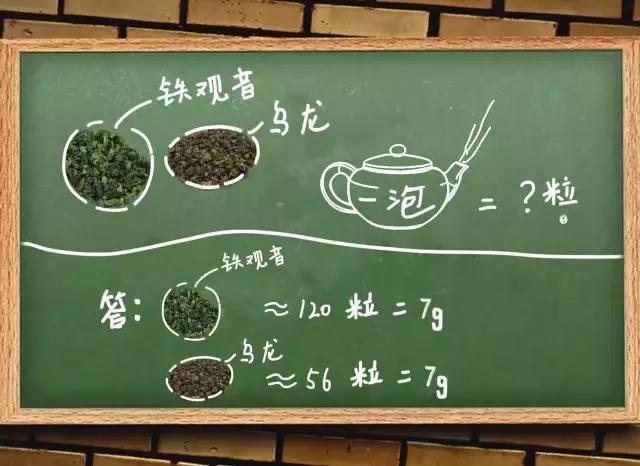 铁观音
乌龙
一泡 = ?粒
铁观音
答: ≈120 粒 = 7g
乌龙
≈56 粒 = 7g